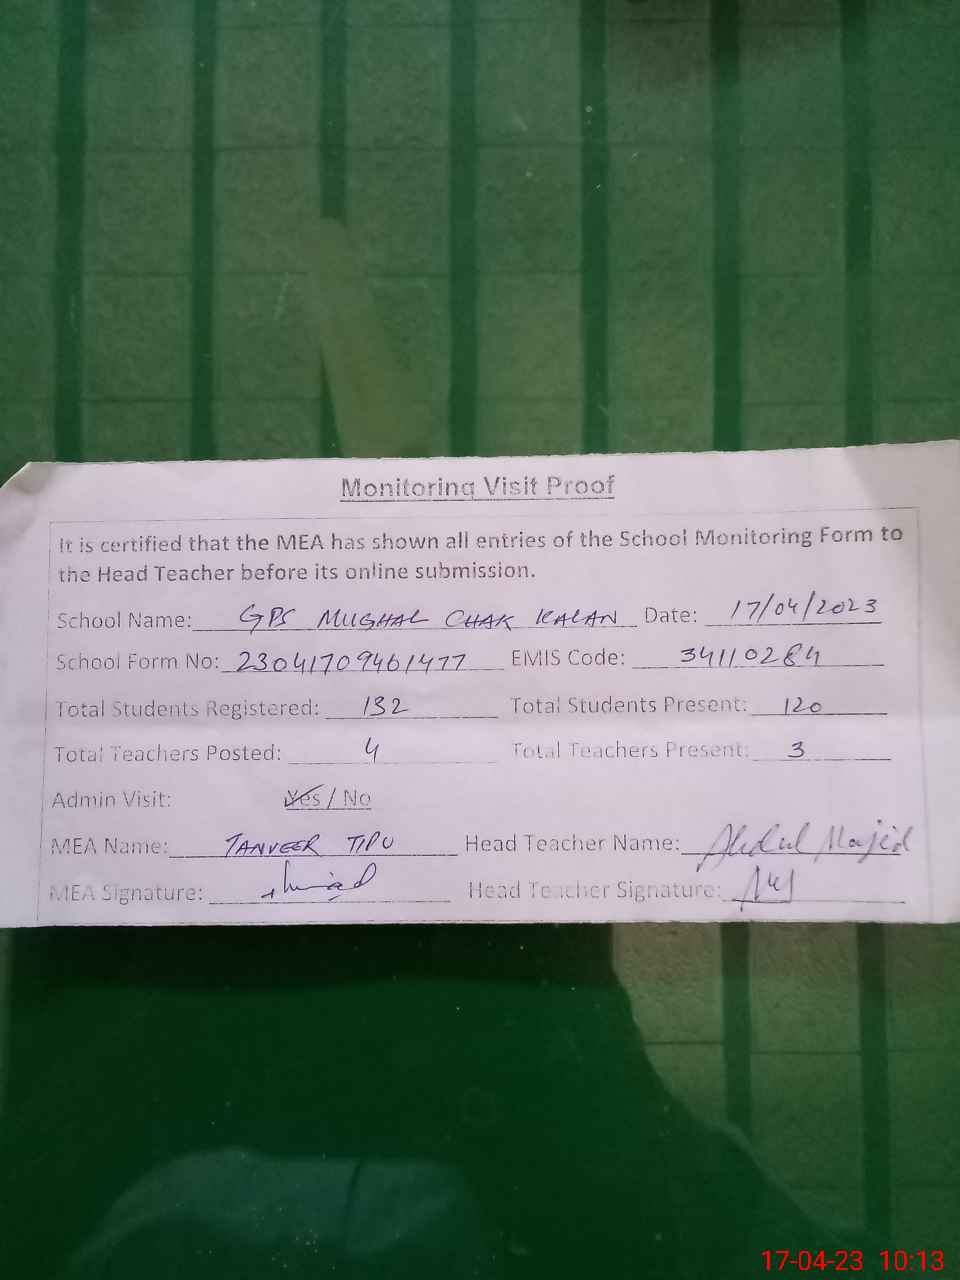 Monitoring Visit Proof
It is certified that the MEA has shown all entries of the School Monitoring Form to
the Head Teacher before its online submission.
School Name: GPS MUGHAL CHAK KALAN Date: 17/04/2023
School Form No: 23041709461477 EMIS Code: 34110284
Total Students Registered: 132 Total Students Present: 120
Total Teachers Posted: 4 Total Teachers Present: 3
Admin Visit: Yes / No
MEA Name: TANVEER TIPU Head Teacher Name: Abdul Majid
MEA Signature: Head Teacher Signature:
17-04-23 10:13